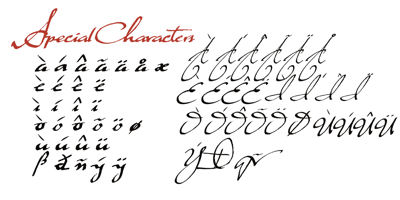 Special Characters
à á â ã ä å æ
è é ê ë
ì í î ï
ò ó ô õ ö ø
ù ú û ü
ß ñ ý ÿ
À Á Â Ã Ä Å
È É Ê Ë Ì Í Î Ï
Ò Ó Ô Õ Ö Ø Ù Ú Û Ü
Ý